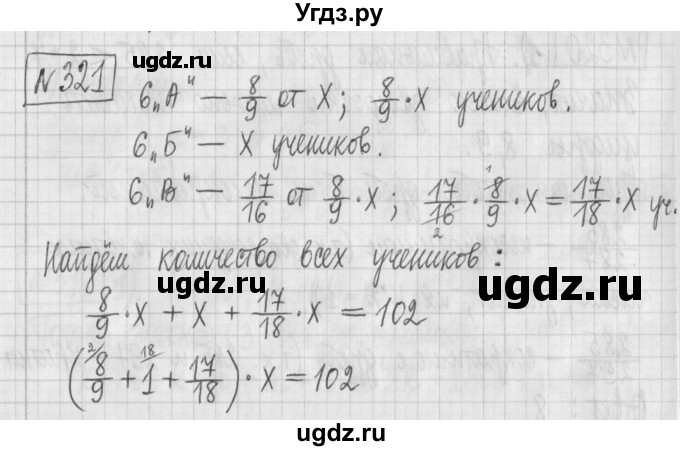 Угдз.ру
№ 321
6 "А" — 8/9 от X; 8/9 · X учеников.
ugdz.ru
6 "Б" — X учеников.
6 "В" — 17/16 от 8/9 · X; 17/16 · 8/9 · X = 17/18 · X уч.
ugdz.ru
Найдём количество всех учеников:
ugdz.ru
ugdz.ru
8/9 · X + X + 17/18 · X = 102
(8/9 + 1 + 17/18) · X = 102
ugdz.ru
ugdz.ru